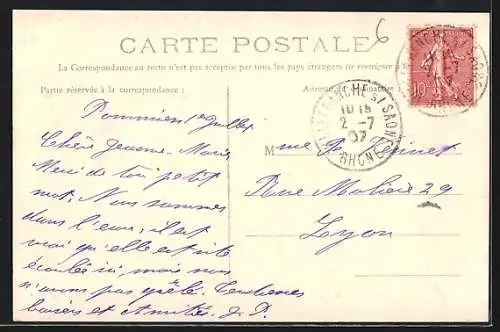 CARTE POSTALE
6
La Correspondance au recto n'est pas acceptée par tous les pays étrangers (se renseigner
Partie réservée à la correspondance :
Pommiers 1er Juillet
Chère Jeanne-Marie
Merci de ton petit
mot, Nous sommes
dans l'eau, il est
vrai qu'elle est vite
écoulée ici, mais nous
n'avons pas grêlé. Tendresses
baisers et Amitiés. J. P.
10
VILLEFRANCHE S/ SAONE
2 -7
07
RHONE
Rue Molière 29
Lyon